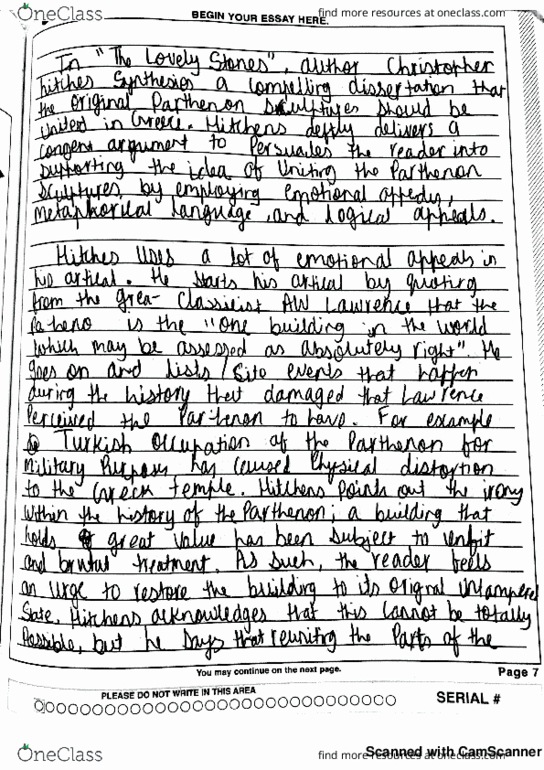 OneClass
BEGIN YOUR ESSAY HERE.
find more resources at oneclass.com
In "The Lovely Stones", author Christopher
hitches Synthesies a compelling dissertation that
the original Parthenon Scultures should be
United in Greece. Hitchens deftly delivers a
congent argument to Persuades the reader into
supporting the idea of Uniting the Parthenon
Scultures, by employing emotional appeals,
metaphorical language, and logical appeals.
Hitches Uses a lot of emotional appeals in
his artical. He starts his artical by quoting
from the grea- Classicist AW Lawrence that the
Patheno is the "one building in the world
which may be assessed as absolutely right". He
goes on and lists / Site events that happen
during the history that damaged that Lawrence
Perceived the Parthenon to have. For example
Turkish Occupation of the Parthenon for
Military Purposes has caused Physical distortion
to the Greek temple. Hitchens Points out the irony
within the history of the Parthenon; a building that
holds great value has been Subject to unfit
and brutal treatment. As Such, the reader feels
an Urge to restore the building to its Original Untampered
State. Hitchens acknowledges that this cannot be totally
Possible, but he Says that reuniting the Parts of the
You may continue on the next page.
Page 7
PLEASE DO NOT WRITE IN THIS AREA
SERIAL #
Scanned with CamScanner
OneClass
find more resources at oneclass.com